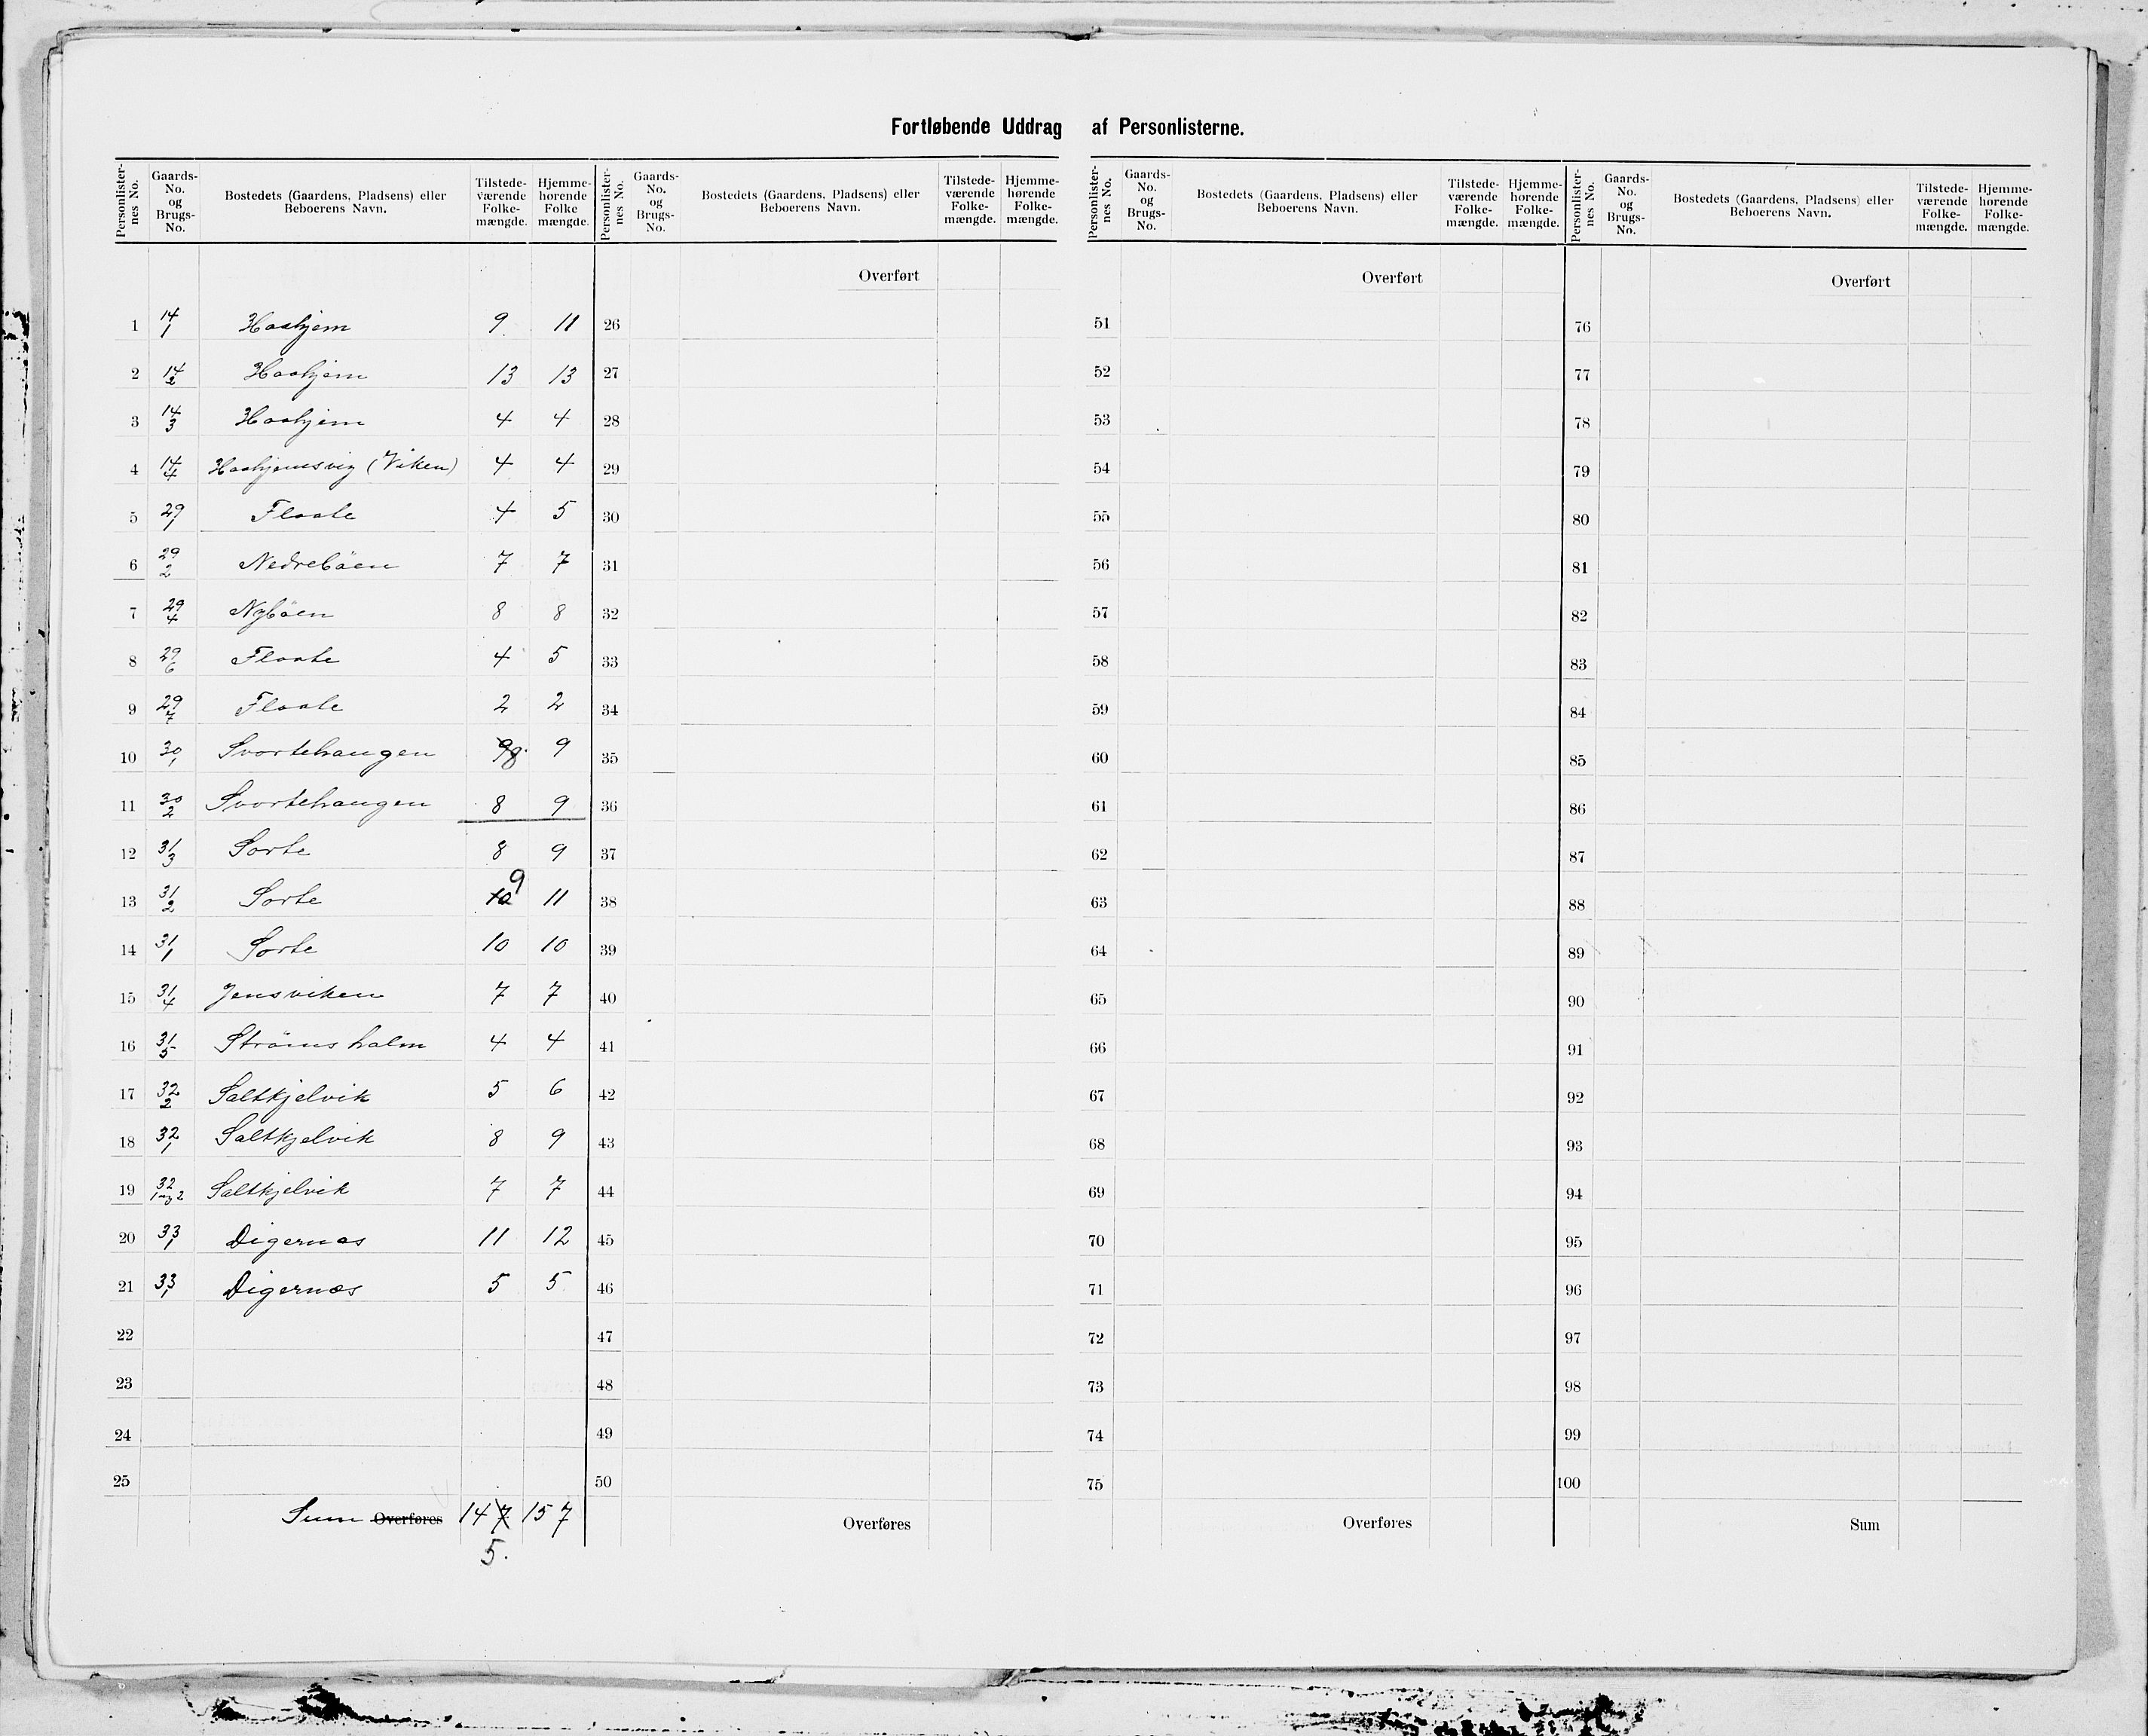 Fortløbende Uddrag af Personlisterne.
Personlister-nes No. | Gaards-No. og Brugs-No. | Bostedets (Gaardens, Pladsens) eller Beboerens Navn. | Tilstede-værende Folke-mængde. | Hjemme-hørende Folke mængde.
1 14/1 Haahjem 9 11
2 14/2 Haahjem 13 13
3 14/3 Haahjem 4 4
4 14/4 Haahjemsvig (Viken) 4 4
5 29/1 Flaate 4 5
6 29/2 Nedreböen 7 7
7 29/4 Nyböen 8 8
8 29/6 Flaate 4 5
9 29/7 Flaate 2 2
10 30/1 Svortehaugen 9 8 9
11 30/2 Svortehaugen 8 9
12 31/3 Sorte 8 9
13 31/2 Sorte 10 9 11
14 31/1 Sorte 10 10
15 31/4 Jensviken 7 7
16 31/5 Strömsholm 4 4
17 32/2 Saltkjelvik 5 6
18 32/1 Saltkjelvik 8 9
19 32/1 og 2 Saltkjelvik 7 7
20 33/1 Digernæs 11 12
21 33/1 Digernæs 5 5
22
23
24
25
Sum Overføres 147 157
5.
Personlister-nes No. | Gaards-No. og Brugs-No. | Bostedets (Gaardens, Pladsens) eller Beboerens Navn. | Tilstede-værende Folke-mængde. | Hjemme-hørende Folke-mængde.
Overført
26
27
28
29
30
31
32
33
34
35
36
37
38
39
40
41
42
43
44
45
46
47
48
49
50
Overføres
Personlister-nes No. | Gaards-No. og Brugs-No. | Bostedets (Gaardens, Pladsens) eller Beboerens Navn. | Tilstede-værende Folke-mængde. | Hjemme-hørende Folke-mængde.
Overført
51
52
53
54
55
56
57
58
59
60
61
62
63
64
65
66
67
68
69
70
71
72
73
74
75
Overføres
Personlister-nes No. | Gaards-No. og Brugs-No. | Bostedets (Gaardens, Pladsens) eller Beboerens Navn. | Tilstede-værende Folke-mængde. | Hjemme-hørende Folke-mængde.
Overført
76
77
78
79
80
81
82
83
84
85
86
87
88
89
90
91
92
93
94
95
96
97
98
99
100
Sum